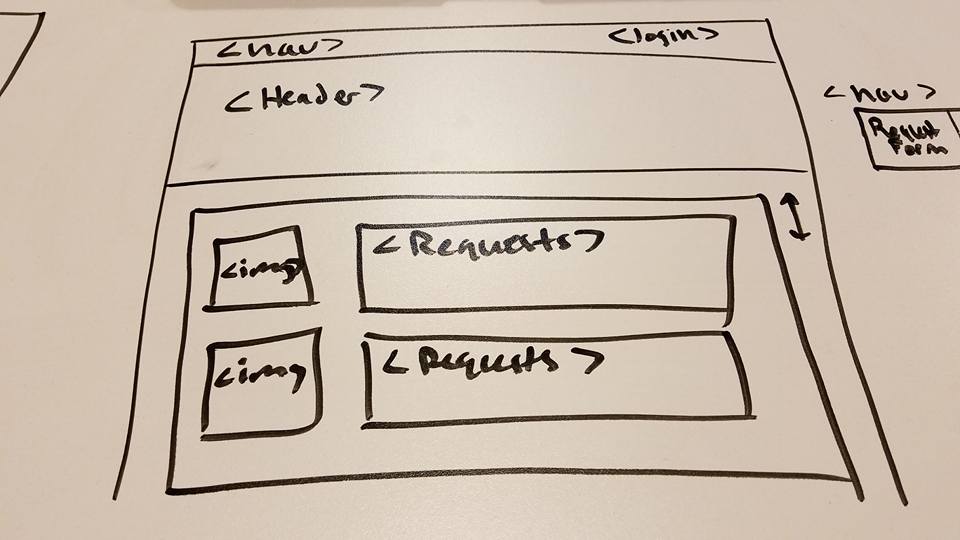 <nav>
<login>
<Header>
<Requests>
<img
<Requests>
<img
<nav>
Request
Form